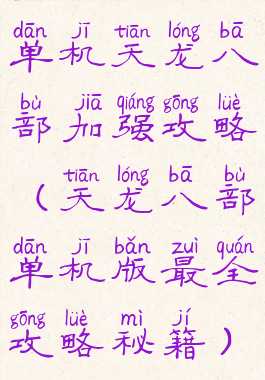 dān jī tiān lóng bā
单机天龙八
bù jiā qiáng gōng lüè
部加强攻略
tiān lóng bā bù
（天龙八部
dān jī bǎn zuì quán
单机版最全
gōng lüè mì jí
攻略秘籍）